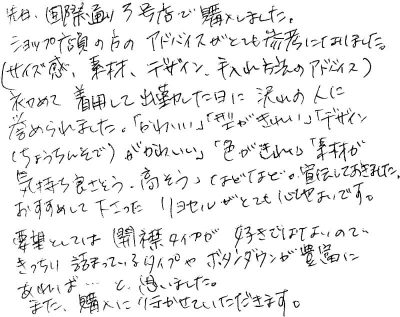 先日、国際通り3号店で購入しました。
ショップ店員の方のアドバイスがとても参考になりました。
(サイズ感、素材、デザイン、手入れ方法のアドバイス)
初めて着用して出勤した日に沢山の人に
誉められました。「かわいい」「型がきれい」「デザイン
(ちょうちんそで)がかわいい」「色がきれい」「素材が
気持ち良さそう・高そう」などなど。宣伝しておきました。
おすすめして下さった リヨセルがとても心地よいです。
要望としては 開襟タイプが 好きではないので、
きっちり詰まっているタイプやボタンダウンが豊富に
あれば…と思いました。
また、購入に行かせていただきます。